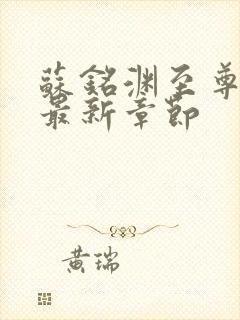 蘇銘淵至尊
最新章節
黃瑞